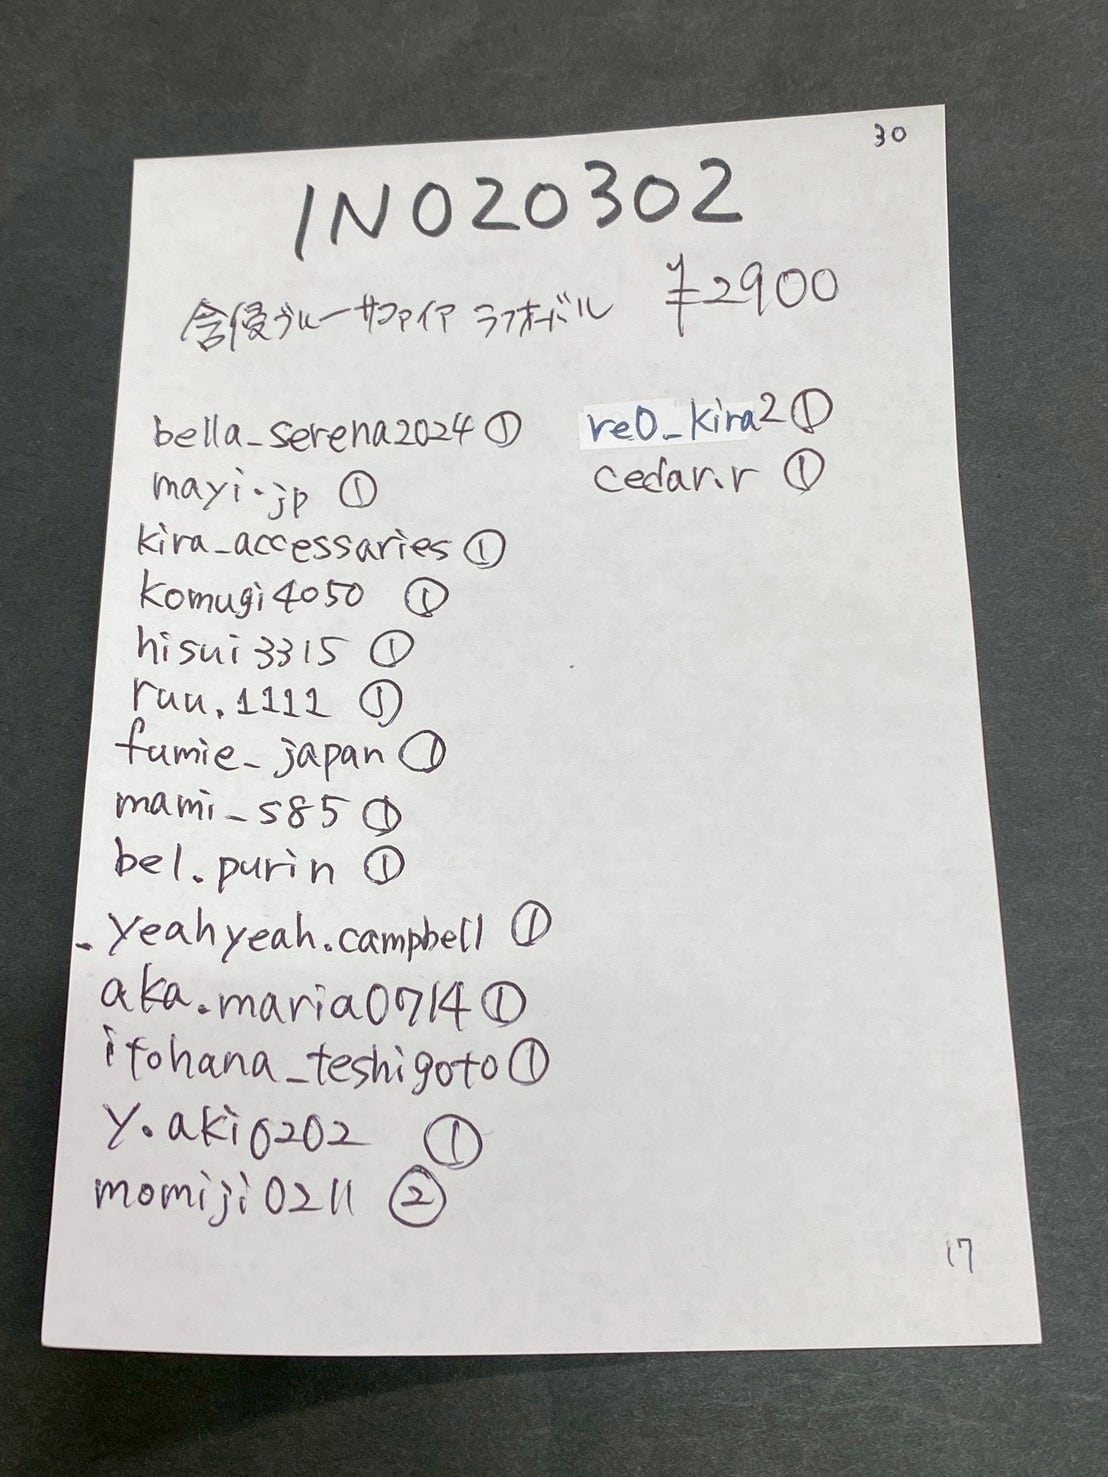 30
INO20302
含侵ブルーサファイア ラフオーバル ¥2900
bella_serena2024 ①
mayi.jp ①
kira_accessaries ①
komugi4050 ①
hisui3315 ①
ruu.1111 ①
fumie_japan ①
mami_s85 ①
bel.purin ①
_yeahyeah.campbell ①
aka.maria0714 ①
itohana_teshigoto ①
y.aki0202 ①
momiji0211 ②
re0_kira2 ①
cedar.r ①
17